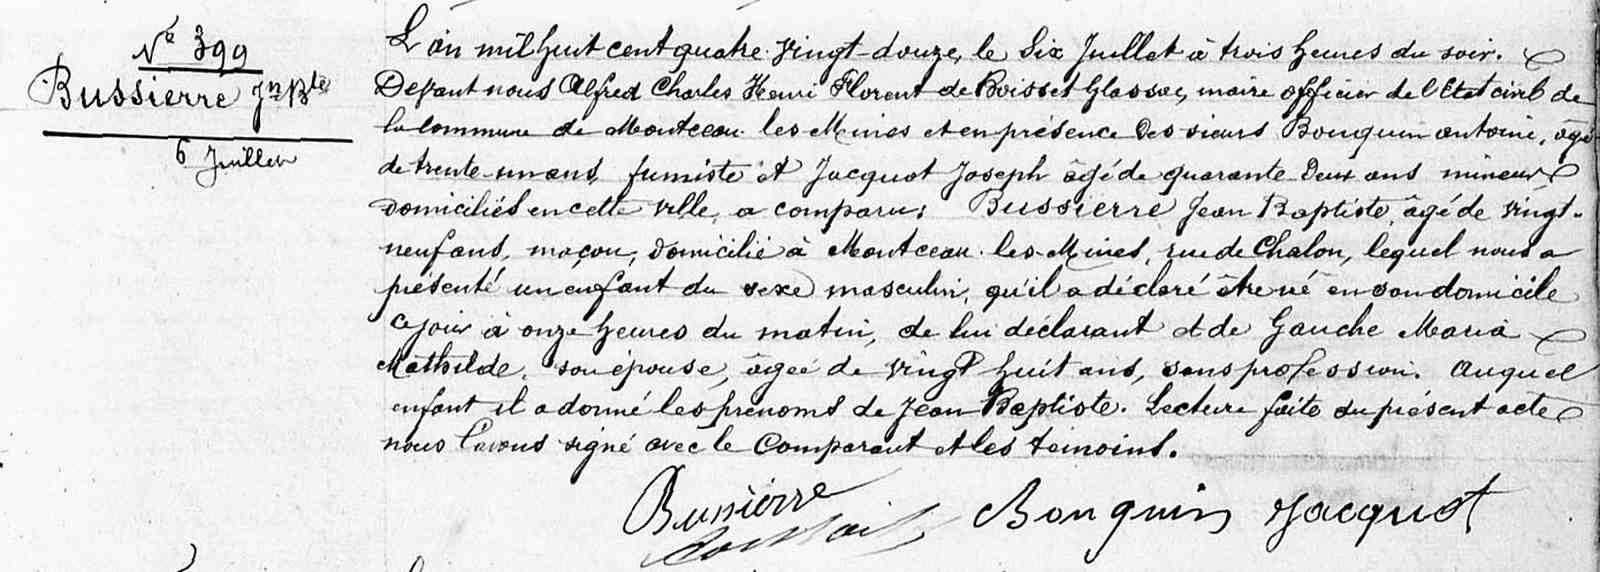 Nº 399
Bussierre Jn Bte
6 Juillet
L'an mil huit cent quatre-vingt-douze, le Six Juillet à trois heures du soir.
Devant nous Alfred Charles Henri Florent de Boisset Glassac, maire officier de l'Etat civil de
la commune de Montceau les Mines et en présence des sieurs Bonguin antoine, âgé
de trente-un ans, fumiste et Jacquot Joseph âgé de quarante deux ans mineur
domiciliés en cette ville, a comparu: Bussierre Jean Baptiste, âgé de vingt-
neuf ans, maçon, domicilié à Montceau-les-Mines, rue de Chalon, lequel nous a
présenté un enfant du sexe masculin, qu'il a déclaré être né en son domicile
ce jour à onze heures du matin, de lui déclarant et de Gauche Maria
Mathilde, son épouse, âgée de vingt huit ans, sans profession. Auquel
enfant il a donné les prénoms de Jean Baptiste. Lecture faite du présent acte
nous l'avons signé avec le Comparant et les témoins.
Bussièrre Bonguin Jacquot